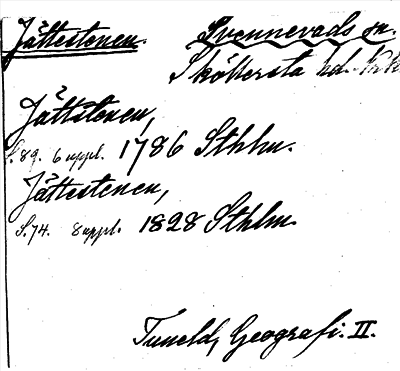 Jättestenen. Svennevads sn.
Sköllersta hd. Nrk
Jättstenen,
S.89. 6 uppl. 1786 Sthlm.
Jättestenen,
S.74. 8 uppl. 1828 Sthlm.
Tuneld, Geografi. II.